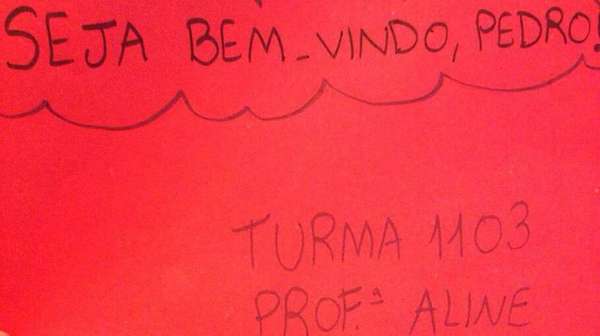 SEJA BEM-VINDO, PEDRO!
TURMA 1103
PROF.ª ALINE